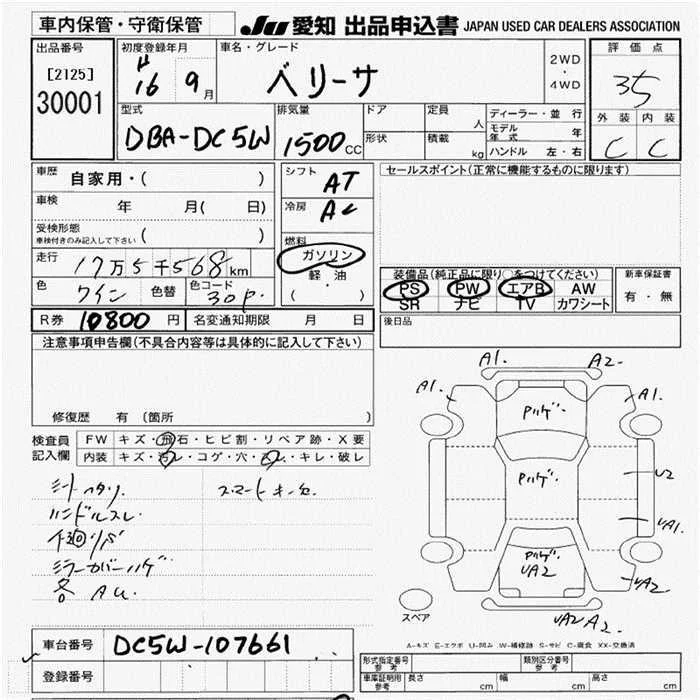 車内保管・守衛保管
JU 愛知 出品申込書 JAPAN USED CAR DEALERS ASSOCIATION
出品番号
[2125]
30001
初度登録年月
H 16 9月
車名・グレード
ベリーサ
2WD
・
4WD
評価点
35
外装 内装
C C
型式
DBA-DC5W
排気量
1500 CC
ドア
形状
定員 人
積載 kg
ディーラー・並行
モデル年式 年
ハンドル 左・右
車歴 自家用・( )
車検 年 月( 日)
受検形態
車検付きのみ記入して下さい ( )
走行 17万5千568km
色 ワイン 色替 色コード 30P.
シフト AT
冷房 AC
燃料
ガソリン
軽・油
( )
セールスポイント(正常に機能するものに限ります)
装備品(純正品に限り○をつけてください)
PS PW エアB AW
SR ナビ TV カワシート
新車保証書
有・無
R券 10800円 名変通知期限 月 日
後日品
注意事項申告欄(不具合内容等は具体的に記入して下さい)
修復歴 有 (箇所 )
検査員
記入欄
FW キズ・飛石・ヒビ割・リペア跡・X要
内装 キズ・汚レ・コゲ・穴・スレ・キレ・破レ
シートヘタリ
スマートキー
ハンドルスレ
ミラーカバーハゲ
各 AU.
A1. A2.
A1. A1.
Pハゲ
Pハゲ
U2
UA1
Pハゲ
UA2
UA2
UA2 A2
スペア
A-キズ E-エクボ U-凹み W-補修跡 S-サビ C-腐食 XX-交換済
車台番号 DC5W-107661
登録番号
形式指定番号
参考
類別区分番号
参考
車庫証明用
参考
長さ cm 幅 cm 高さ cm